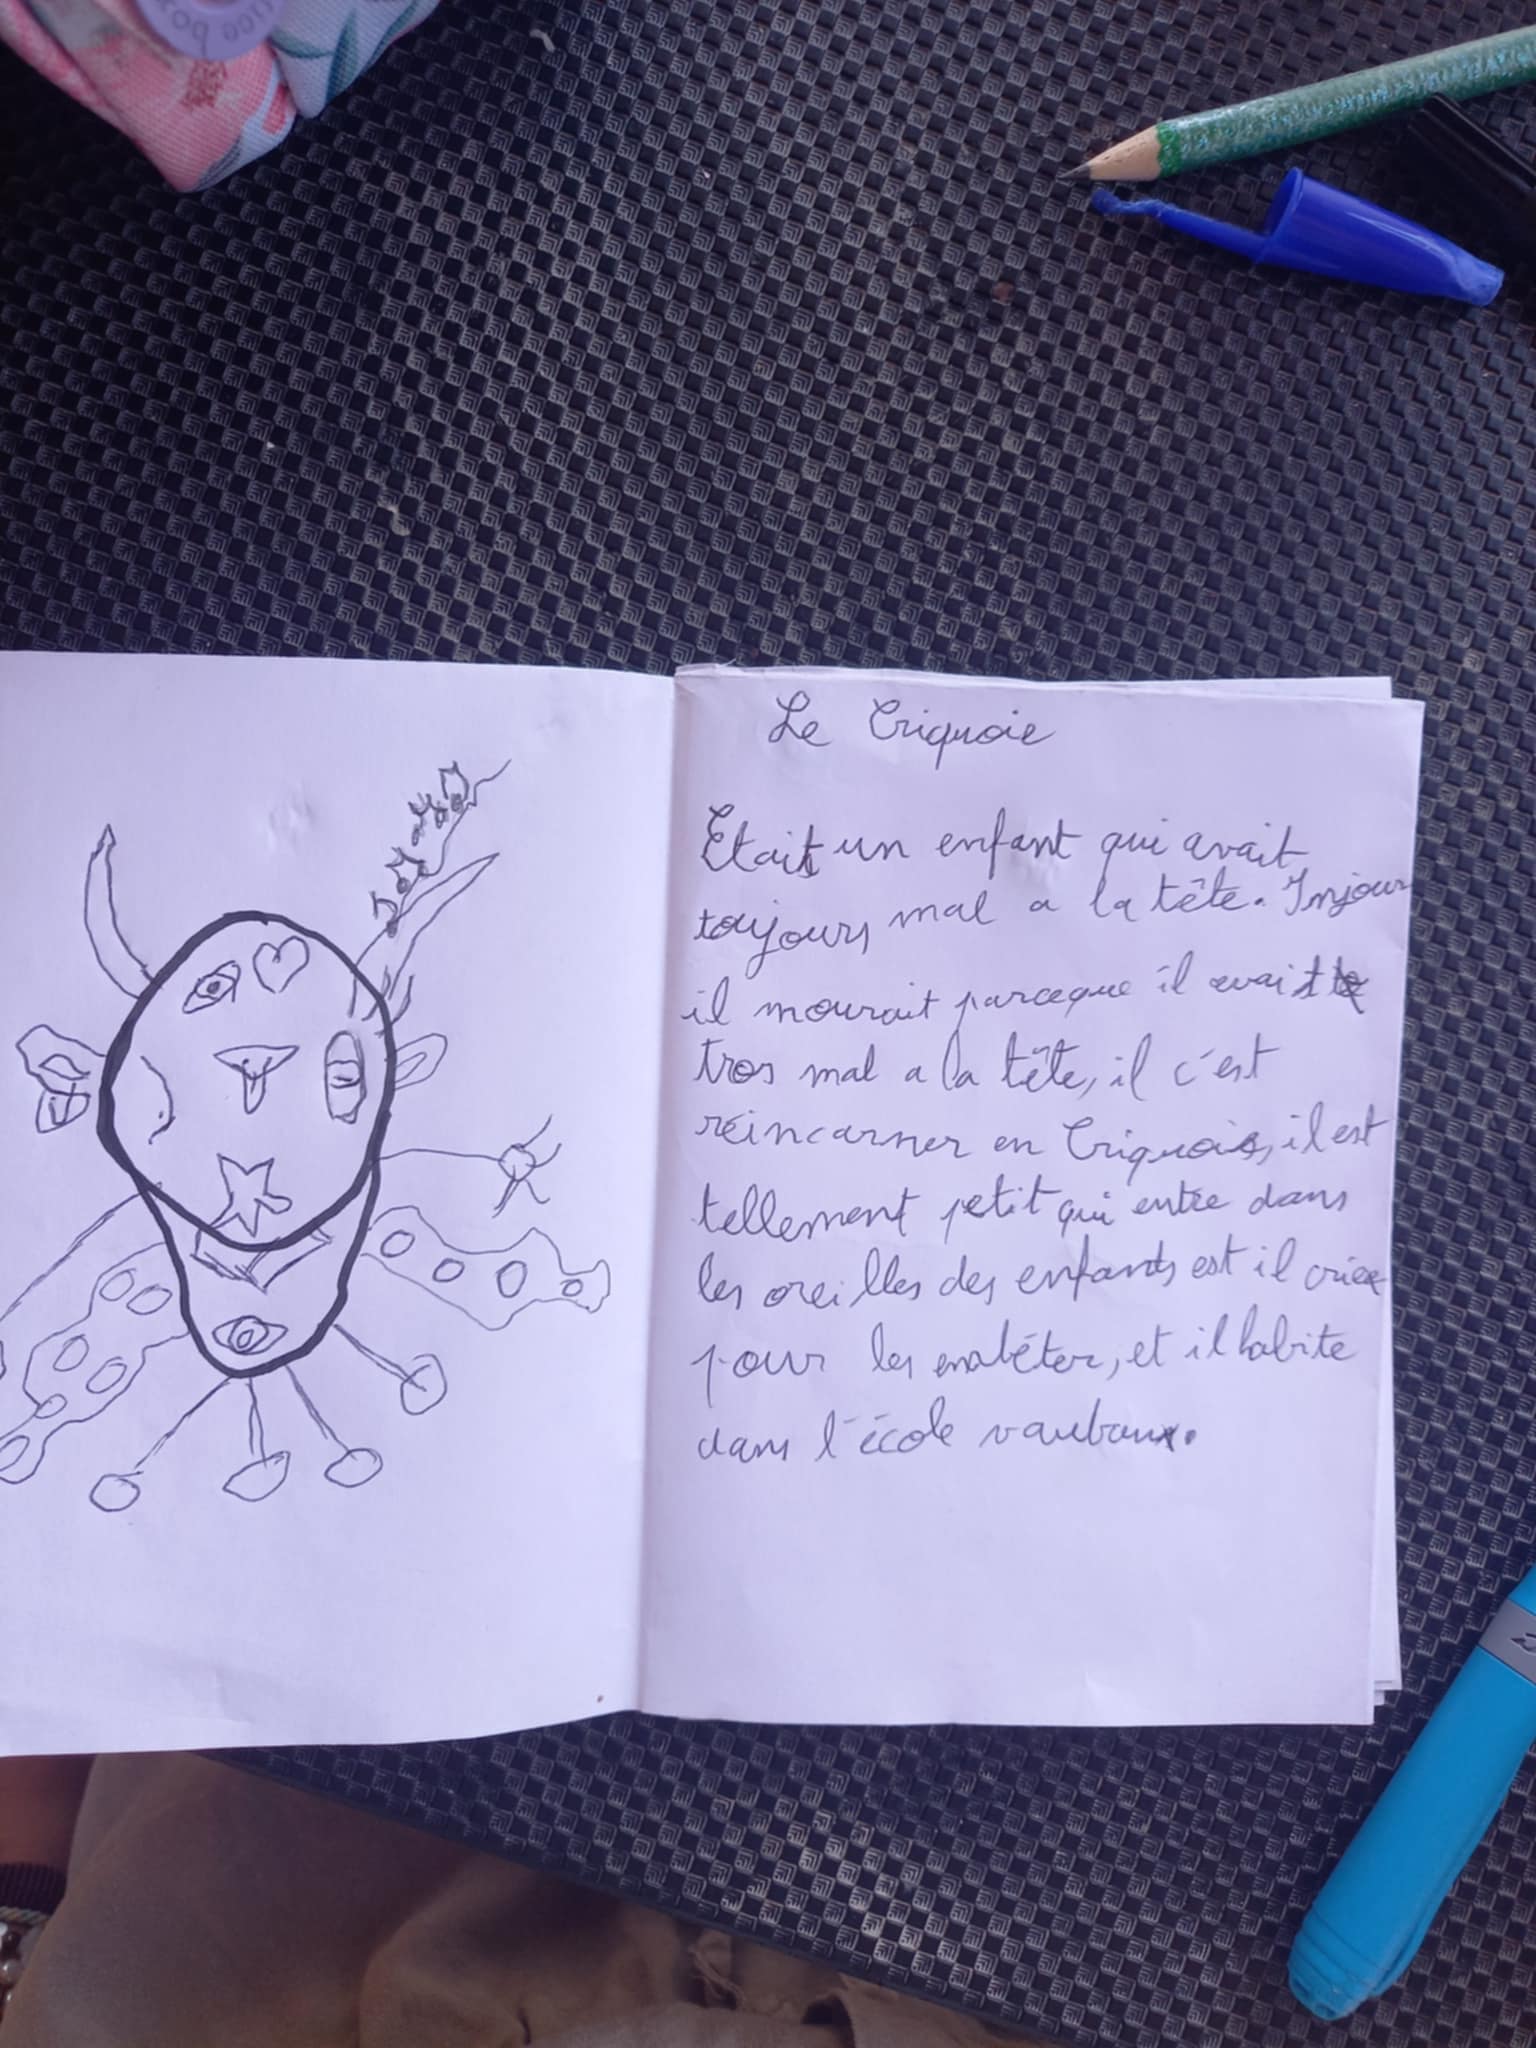 Le Criquoie
Etait un enfant qui avait
toujours mal a la tête. Injour
il mourait parceque il avait
tros mal a la tête, il c'est
réincarner en Criquoie, il est
tellement petit qui entre dans
les oreilles des enfants est il criee
pour les enabéter, et il habite
dans l'école vauban.